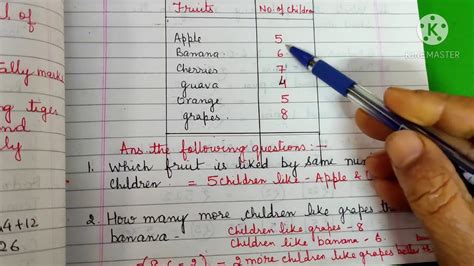 Fruits No. of Children
Apple 5
Banana 6
Cherries 7
guava 4
Orange 5
grapes. 8
Ans. the following questions:-
1. Which fruit is liked by same num
children = 5 children like - Apple &
2. How many more children like grapes
banana- children like grapes - 8
children like banana = 6.
2 more children like grapes
l of
ally mark
ng tiges
and
ly
4+12
26
K
KINEMASTER